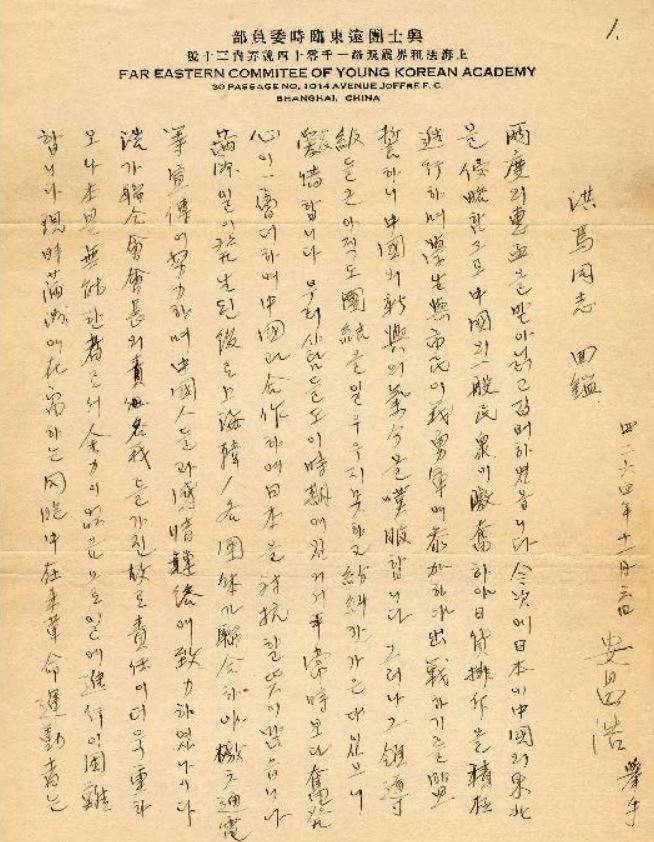 1.
興士團遠東臨時委員部
上海法租界霞飛路一千零十四號弄內三十號
FAR EASTERN COMMITEE OF YOUNG KOREAN ACADEMY
30 PASSAGE NO, 1014 AVENUE JOFFRE F. C.
SHANGHAI, CHINA
四二六四年十一月三日 安昌浩 擧手
洪焉同志 回鑑
兩度의惠函을받아닑고 하엿읍니다 今次에日本이中國의東北
을侵略함으로中國의一般民衆이激奮하야日貨排斥을積極
進行하며學生與市民이義勇軍에參加하야出戰하기를盟
誓하니中國의新興의氣分을嘆服합니다 그러나그領導
級들은아직도團結을일우우지못하고紛糾한가온대잇스니
歎惜합니다 우리사람들도이時期에잇서서平常時보다奮發
心이一層더하며中國과合作하여日本을對抗할뜻이만읍니다
滿洲일이發生된後로上海韓人各團體가聯合하야檄文通電
等宣傳에努力하며中國人들과感情聯絡에致力하엿나이다
浩가聯合會會長의責任名義를가진故로責任이더욱重하
오나本是無能한者로서金力이업음으로모든일에進行이困難
합니다現時滿洲에在留하는同胞中在來革命運動者는